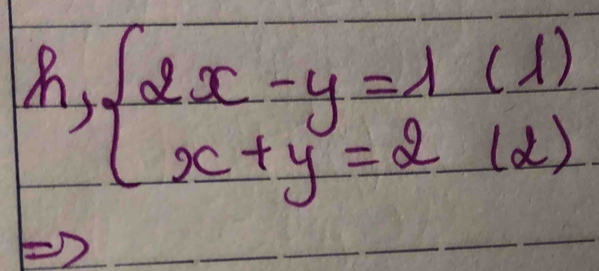 h, { 2x - y = 1 (1)
x + y = 2 (2)
=>